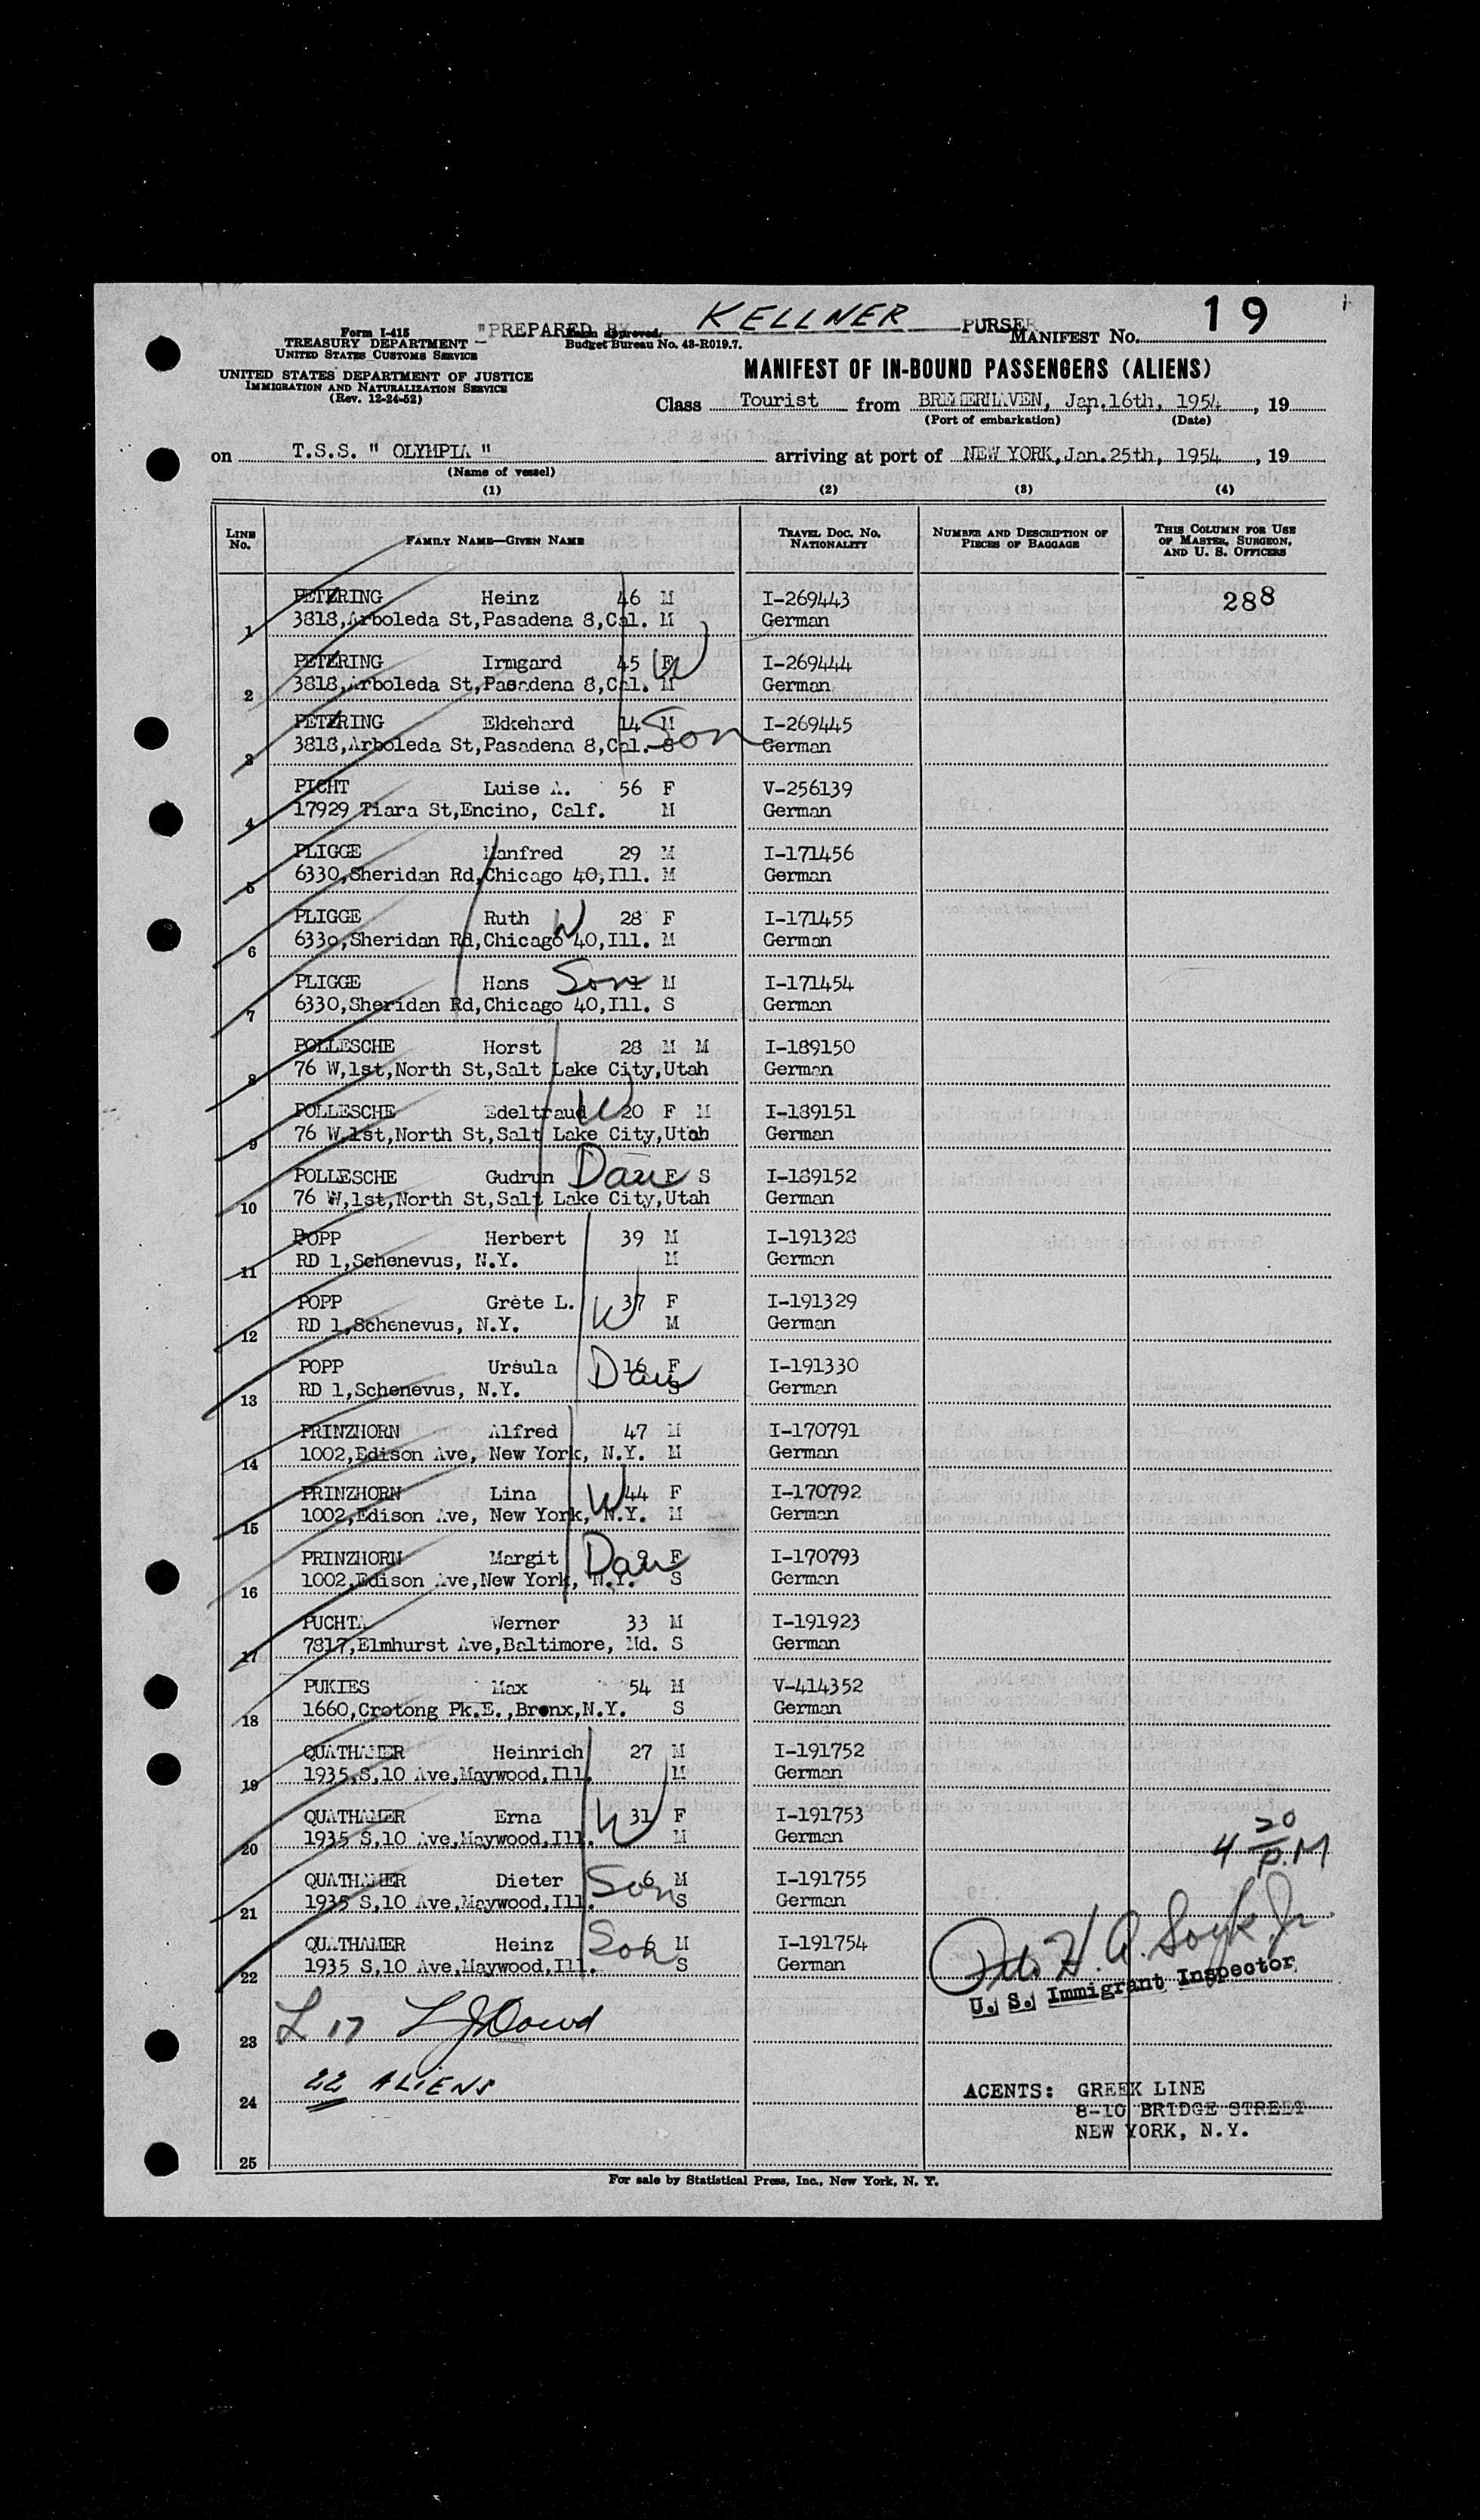 KELLNER
19
Form I-415
TREASURY DEPARTMENT
UNITED STATES CUSTOMS SERVICE
"PREPARED BY PURSER
Budget Bureau No. 43-R019.7.
MANIFEST No.
UNITED STATES DEPARTMENT OF JUSTICE
IMMIGRATION AND NATURALIZATION SERVICE
(Rev. 12-24-52)
MANIFEST OF IN-BOUND PASSENGERS (ALIENS)
Class Tourist from BREMERHAVEN, Jan.16th, 1954, 19
(Port of embarkation) (Date)
on T.S.S. " OLYMPIA " arriving at port of NEW YORK,Jan.25th, 1954, 19
(Name of vessel)
(1) (2) (3) (4)
LINE No. FAMILY NAME—GIVEN NAME TRAVEL DOC. NO. NATIONALITY NUMBER AND DESCRIPTION OF PIECES OF BAGGAGE THIS COLUMN FOR USE OF MASTER, SURGEON, AND U. S. OFFICERS
PETERING Heinz 46 M I-269443 288
1 3818,Arboleda St,Pasadena 8,Cal. M German
PETERING Irmgard 45 F W I-269444
2 3818,Arboleda St,Pasadena 8,Cal. M German
PETERING Ekkehard 14 M Son I-269445
3 3818,Arboleda St,Pasadena 8,Cal. S German
PICHT Luise A. 56 F V-256139
4 17929 Tiara St,Encino, Calf. M German
PLIGGE Manfred 29 M I-171456
5 6330,Sheridan Rd,Chicago 40,Ill. M German
PLIGGE Ruth W 28 F I-171455
6 6330,Sheridan Rd,Chicago 40,Ill. M German
PLIGGE Hans Son M I-171454
7 6330,Sheridan Rd,Chicago 40,Ill. S German
POLLESCHE Horst 28 M M I-189150
8 76 W,1st,North St,Salt Lake City,Utah German
POLLESCHE Edeltraud W 20 F M I-189151
9 76 W,1st,North St,Salt Lake City,Utah German
POLLESCHE Gudrun Dau F S I-189152
10 76 W,1st,North St,Salt Lake City,Utah German
POPP Herbert 39 M I-191328
11 RD 1,Schenevus, N.Y. M German
POPP Grete L. W 37 F I-191329
12 RD 1,Schenevus, N.Y. M German
POPP Ursula Dau 16 F I-191330
13 RD 1,Schenevus, N.Y. S German
PRINZHORN Alfred 47 M I-170791
14 1002,Edison Ave, New York, N.Y. M German
PRINZHORN Lina W 44 F I-170792
15 1002,Edison Ave, New York, N.Y. M German
PRINZHORN Margit Dau F I-170793
16 1002,Edison Ave,New York, N.Y. S German
PUCHTA Werner 33 M I-191923
17 7817,Elmhurst Ave,Baltimore, Md. S German
PUKIES Max 54 M V-414352
18 1660,Crotong Pk.E.,Bronx,N.Y. S German
QUATHAMER Heinrich 27 M I-191752
19 1935,S,10 Ave,Maywood,Ill. M German
QUATHAMER Erna W 31 F I-191753
20 1935 S,10 Ave,Maywood,Ill. M German 4 20 P.M
QUATHAMER Dieter Son 6 M I-191755
21 1935 S,10 Ave,Maywood,Ill. S German
QUATHAMER Heinz Son 6 M I-191754
22 1935 S,10 Ave,Maywood,Ill. S German
U. S. Immigrant Inspector
23 L 17
24 22 ALIENS
AGENTS: GREEK LINE
8-10 BRIDGE STREET
NEW YORK, N.Y.
25
For sale by Statistical Press, Inc., New York, N. Y.